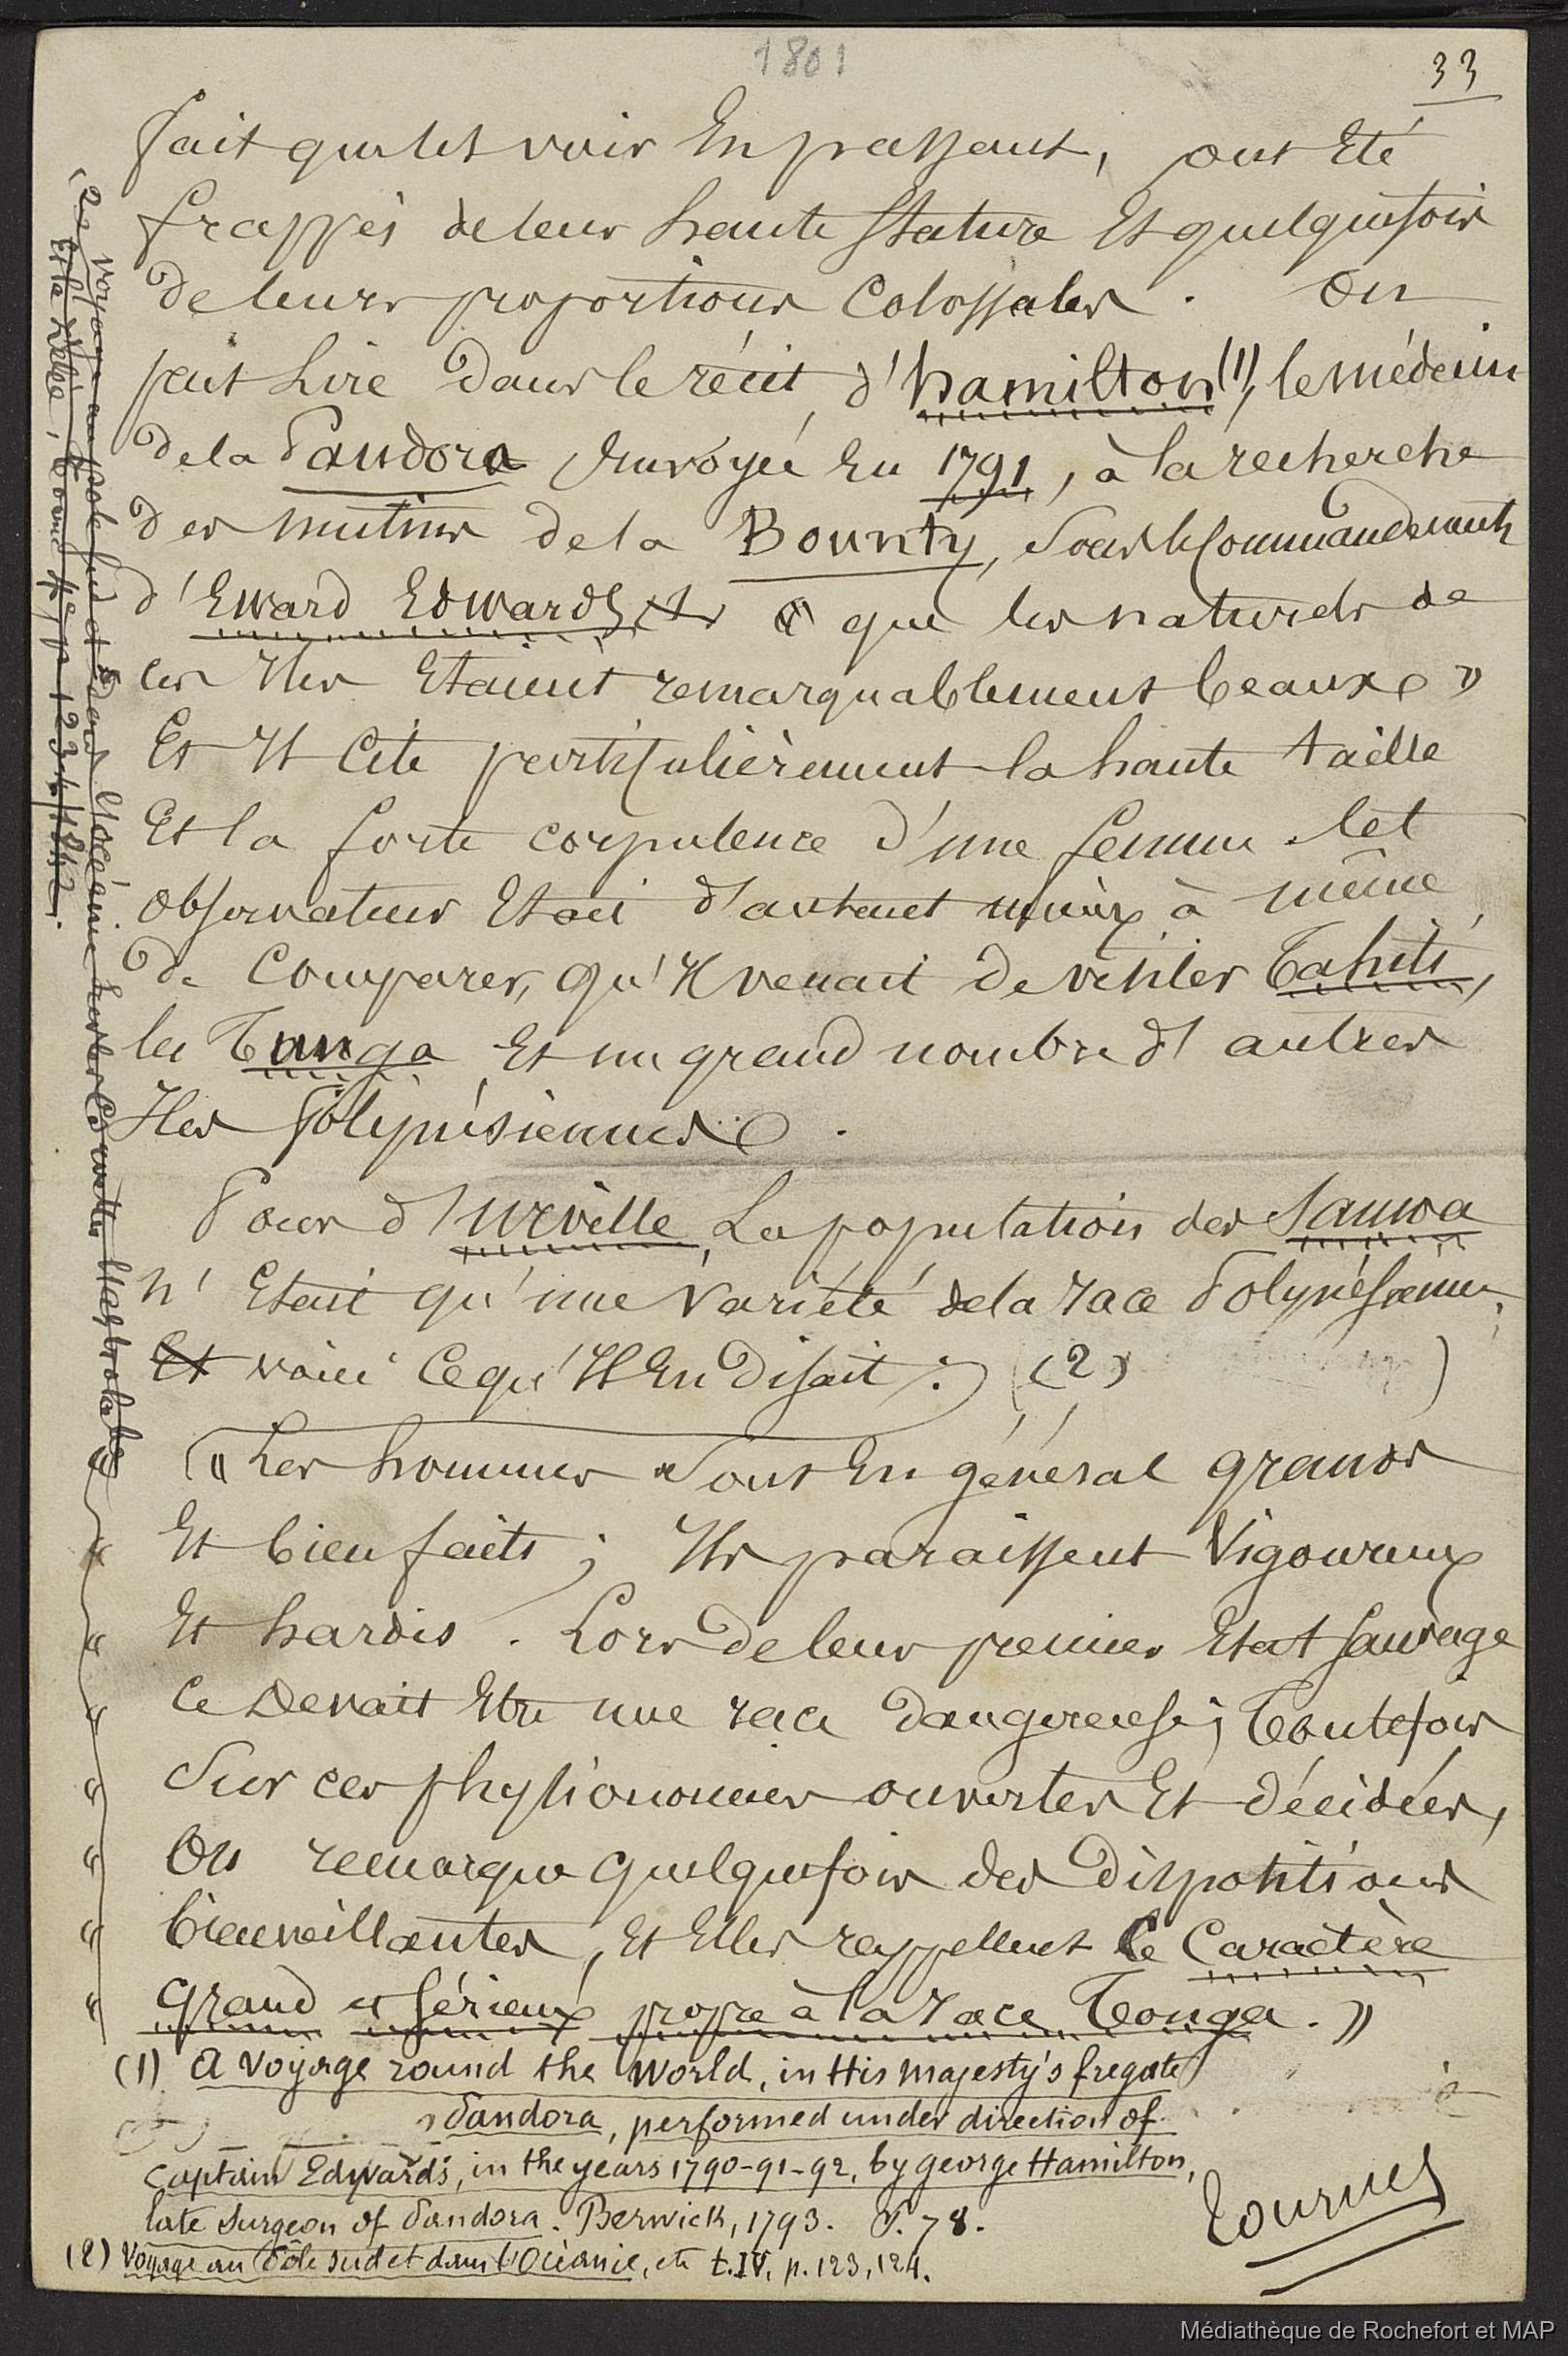 1801
33
fait que les voir En passant, ont Eté
frappés de leur haute Stature Et quelquefois
de leurs proportions Colossales. On
peut Lire dans le récit d'hamilton (1), le médecin
de la Pandora Envoyée En 1791, à la recherche
des mutins de la Bounty, Sous le Commandement
d'Eward Edwards « que les naturels de
ces Iles Etaient remarquablement beaux »
Et Il Cite particulièrement la haute taille
Et la forte corpulence d'une femme. Cet
observateur Etait d'autant mieux à même
de Comparer, qu'Il venait de visiter Tahiti,
les Tunga Et un grand nombre d'autres
Iles Polynésiennes.
Pour d'Urville, La population des Samoa
n'Etait qu'une variété de la race Polynésienne;
Et voici Ce qu'Il En disait : (2)
« Les hommes Sont En général grands
Et bien faits ; Ils paraissent Vigoureux
Et hardis. Lors de leur premier Etat Sauvage
Ce devait Etre une race dangereuse ; Toutefois
Sur ces physionomies ouvertes Et décidées,
On remarque quelquefois des dispositions
bienveillantes, Et Elles rappellent le Caractère
grand et sérieux propre à la race Tonga. »
(1) A Voyage round the World, in His Majesty's fregate
Pandora, performed under direction of
Captain Edwards, in the years 1790-91-92, by george Hamilton,
late Surgeon of Pandora. Berwick, 1793. P. 78.
(2) Voyage au Pôle sud et dans l'Océanie, etc t. IV, p. 123, 124.
Tournez
(2 voyage au pole sud et dans l'océanie sur les Corvettes l'astrolabe
Et la Zélée, tome 4e, p 123 1842.
Médiathèque de Rochefort et MAP